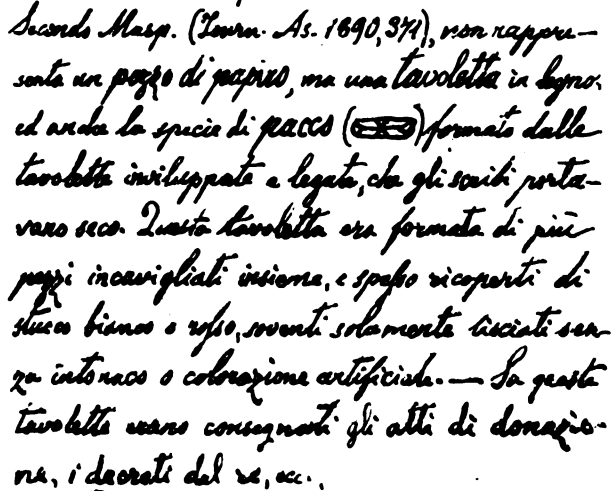 Secondo Masp. (Journ. As. 1890, 371), non rappre-
senta un pezzo di papiro, ma una tavoletta in legno,
ed anche la specie di pacco () formato dalle
tavolette inviluppate e legate, che gli scribi porta-
vano seco. Questa tavoletta era formata di più
pezzi incavigliati insieme, e spesso ricoperti di
stucco bianco o rosso, soventi solamente lisciati sen-
za intonaco o colorazione artificiale. — Su queste
tavolette erano consegnati gli atti di donazio-
ne, i decreti del re, ecc.,